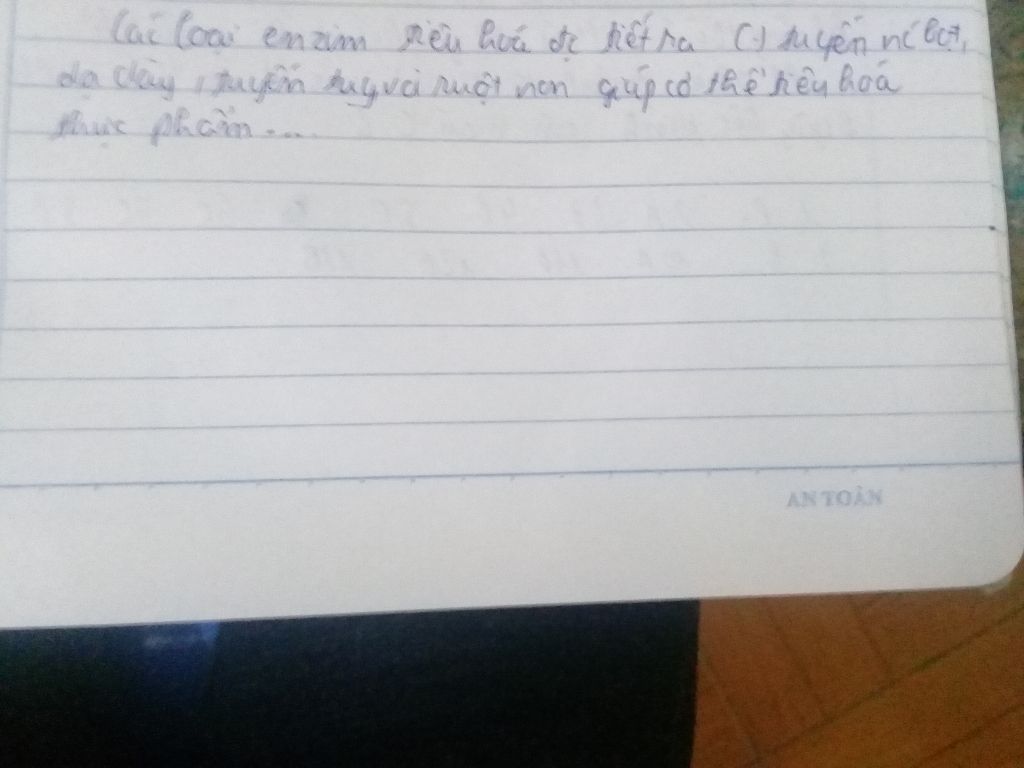 Các loại enzim tiêu hoá đc tiết ra (.) tuyến nc bọt,
dạ dày, tuyến tuỵ và ruột non giúp cơ thể tiêu hoá
thực phẩm...
AN TOÀN